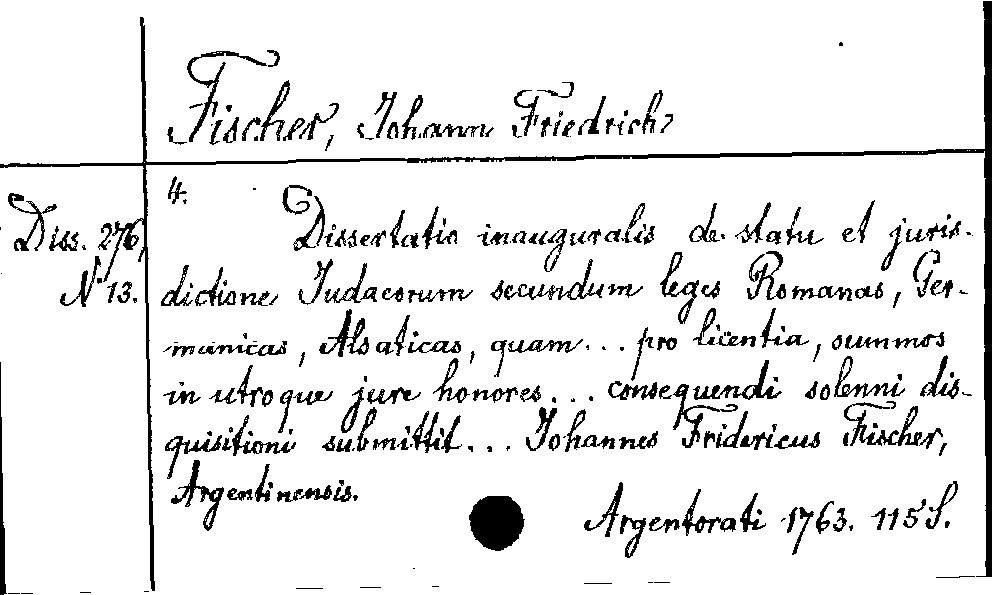 Fischer, Johann Friedrich
4.
Diss. 276,
N. 13.
Dissertatio inauguralis de statu et juris-
dictione Judaeorum secundum leges Romanas, Ger-
manicas, Alsaticas, quam... pro licentia, summos
in utroque jure honores... consequendi solenni dis-
quisitioni submittit... Johannes Fridericus Fischer,
Argentinensis.
Argentorati 1763. 115 S.